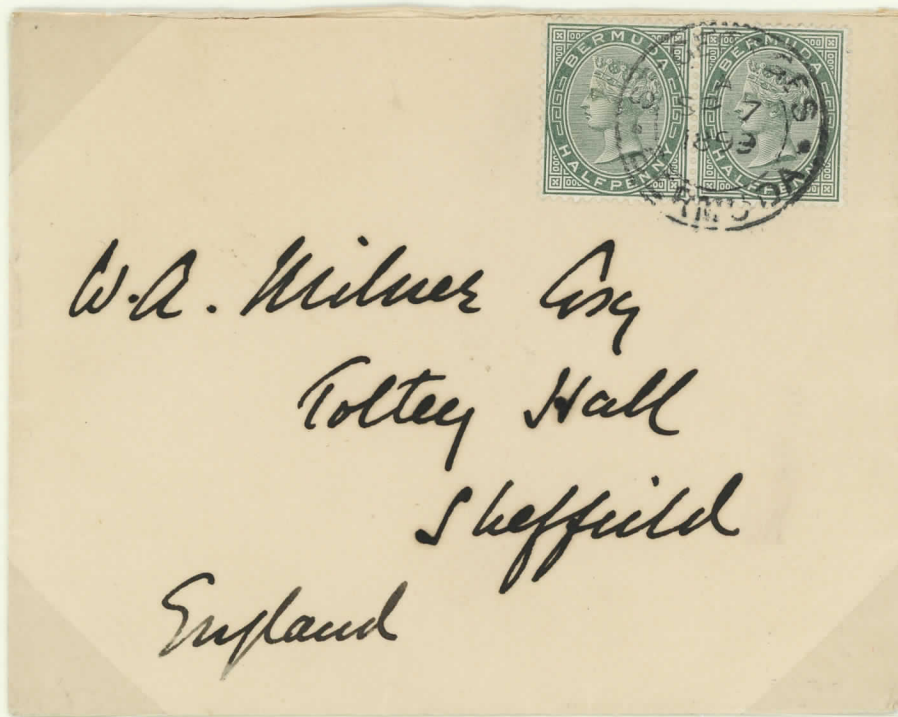 BERMUDA
HALFPENNY
BERMUDA
HALFPENNY
ST GEORGES
7
BERMUDA
W. A. Milner Esq
Tottey Hall
Sheffield
England